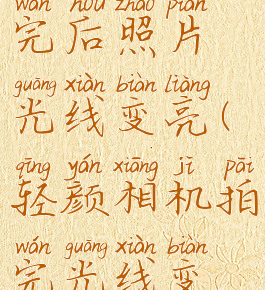 wán hòu zhào piàn
完后照片
guāng xiàn biàn liàng
光线变亮(
qīng yán xiāng jī pāi
轻颜相机拍
wán guāng xiàn biàn
完光线变